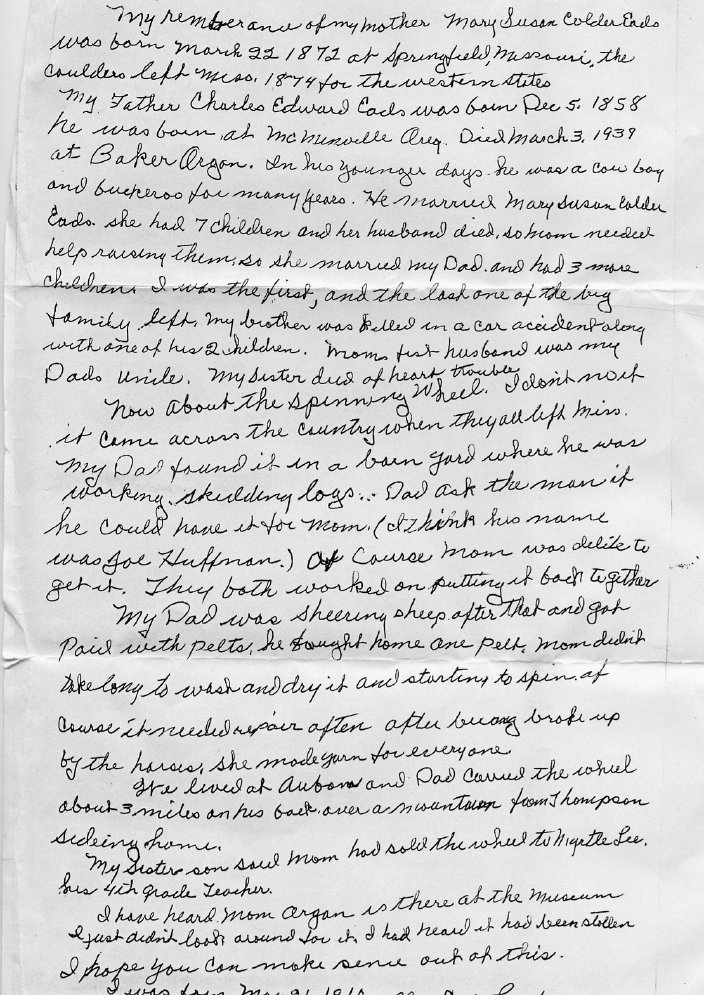 My remberance of my mother Mary Susan Colder Eads
was born March 22 1872 at Springfield, Missouri, the
Coulders left Miss. 1874 for the western states
My Father Charles Edward Eads was born Dec 5. 1858
he was born at McMinville Oreg. Died March 3, 1939
at Baker Orgon. In his younger days he was a cow boy
and buckeroo for many years. He married Mary Susan Colder
Eads. she had 7 children and her husband died, so mom needed
help raising them, so she married my Dad. and had 3 more
children. I was the first, and the last one of the big
family left. My brother was killed in a car accident along
with one of his 2 children. Moms fist husband was my
Dads Uncle. My sister died of heart trouble
Now about the spinning wheel. I don't no if
it come across the country when they all left Miss.
My Dad found it in a barn yard where he was
working, skidding logs... Dad ask the man if
he could have it for Mom. (I think his name
was Joe Huffman.) Of Course Mom was delite to
get it. They both worked on putting it back together
My Dad was sheering sheep after that and got
Paid with pelts, he bought home one pelt, Mom didn't
take long to wash and dry it and starting to spin. of
course it needed repair often after being broke up
by the horses, she made yarn for everyone
We lived at and Dad carried the wheel
about 3 miles on his back over a mountain from Thompson
sideing home.
My Sister son said Mom had sold the wheel to Myrtle Lee.
his 4th grade Teacher.
I have heard Mom Organ is there at the Museum
I just didn't look around for it, I had heard it had been stollen
I hope you can make sence out of this.
I was born